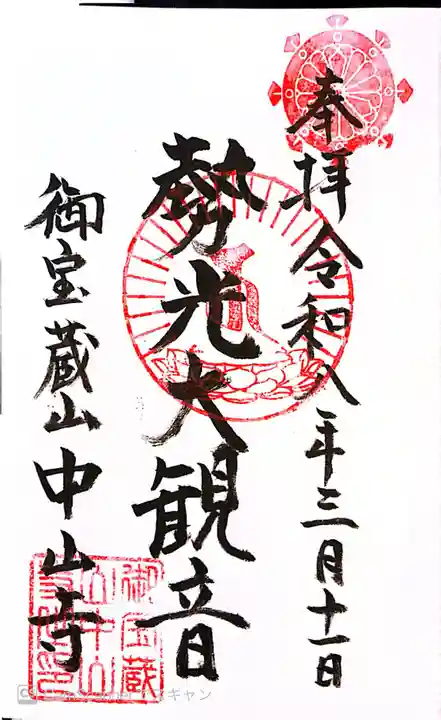 奉拝 令和八年三月十一日
勢光大観音
御宝蔵山 中山寺
御宝蔵
山中山
寺